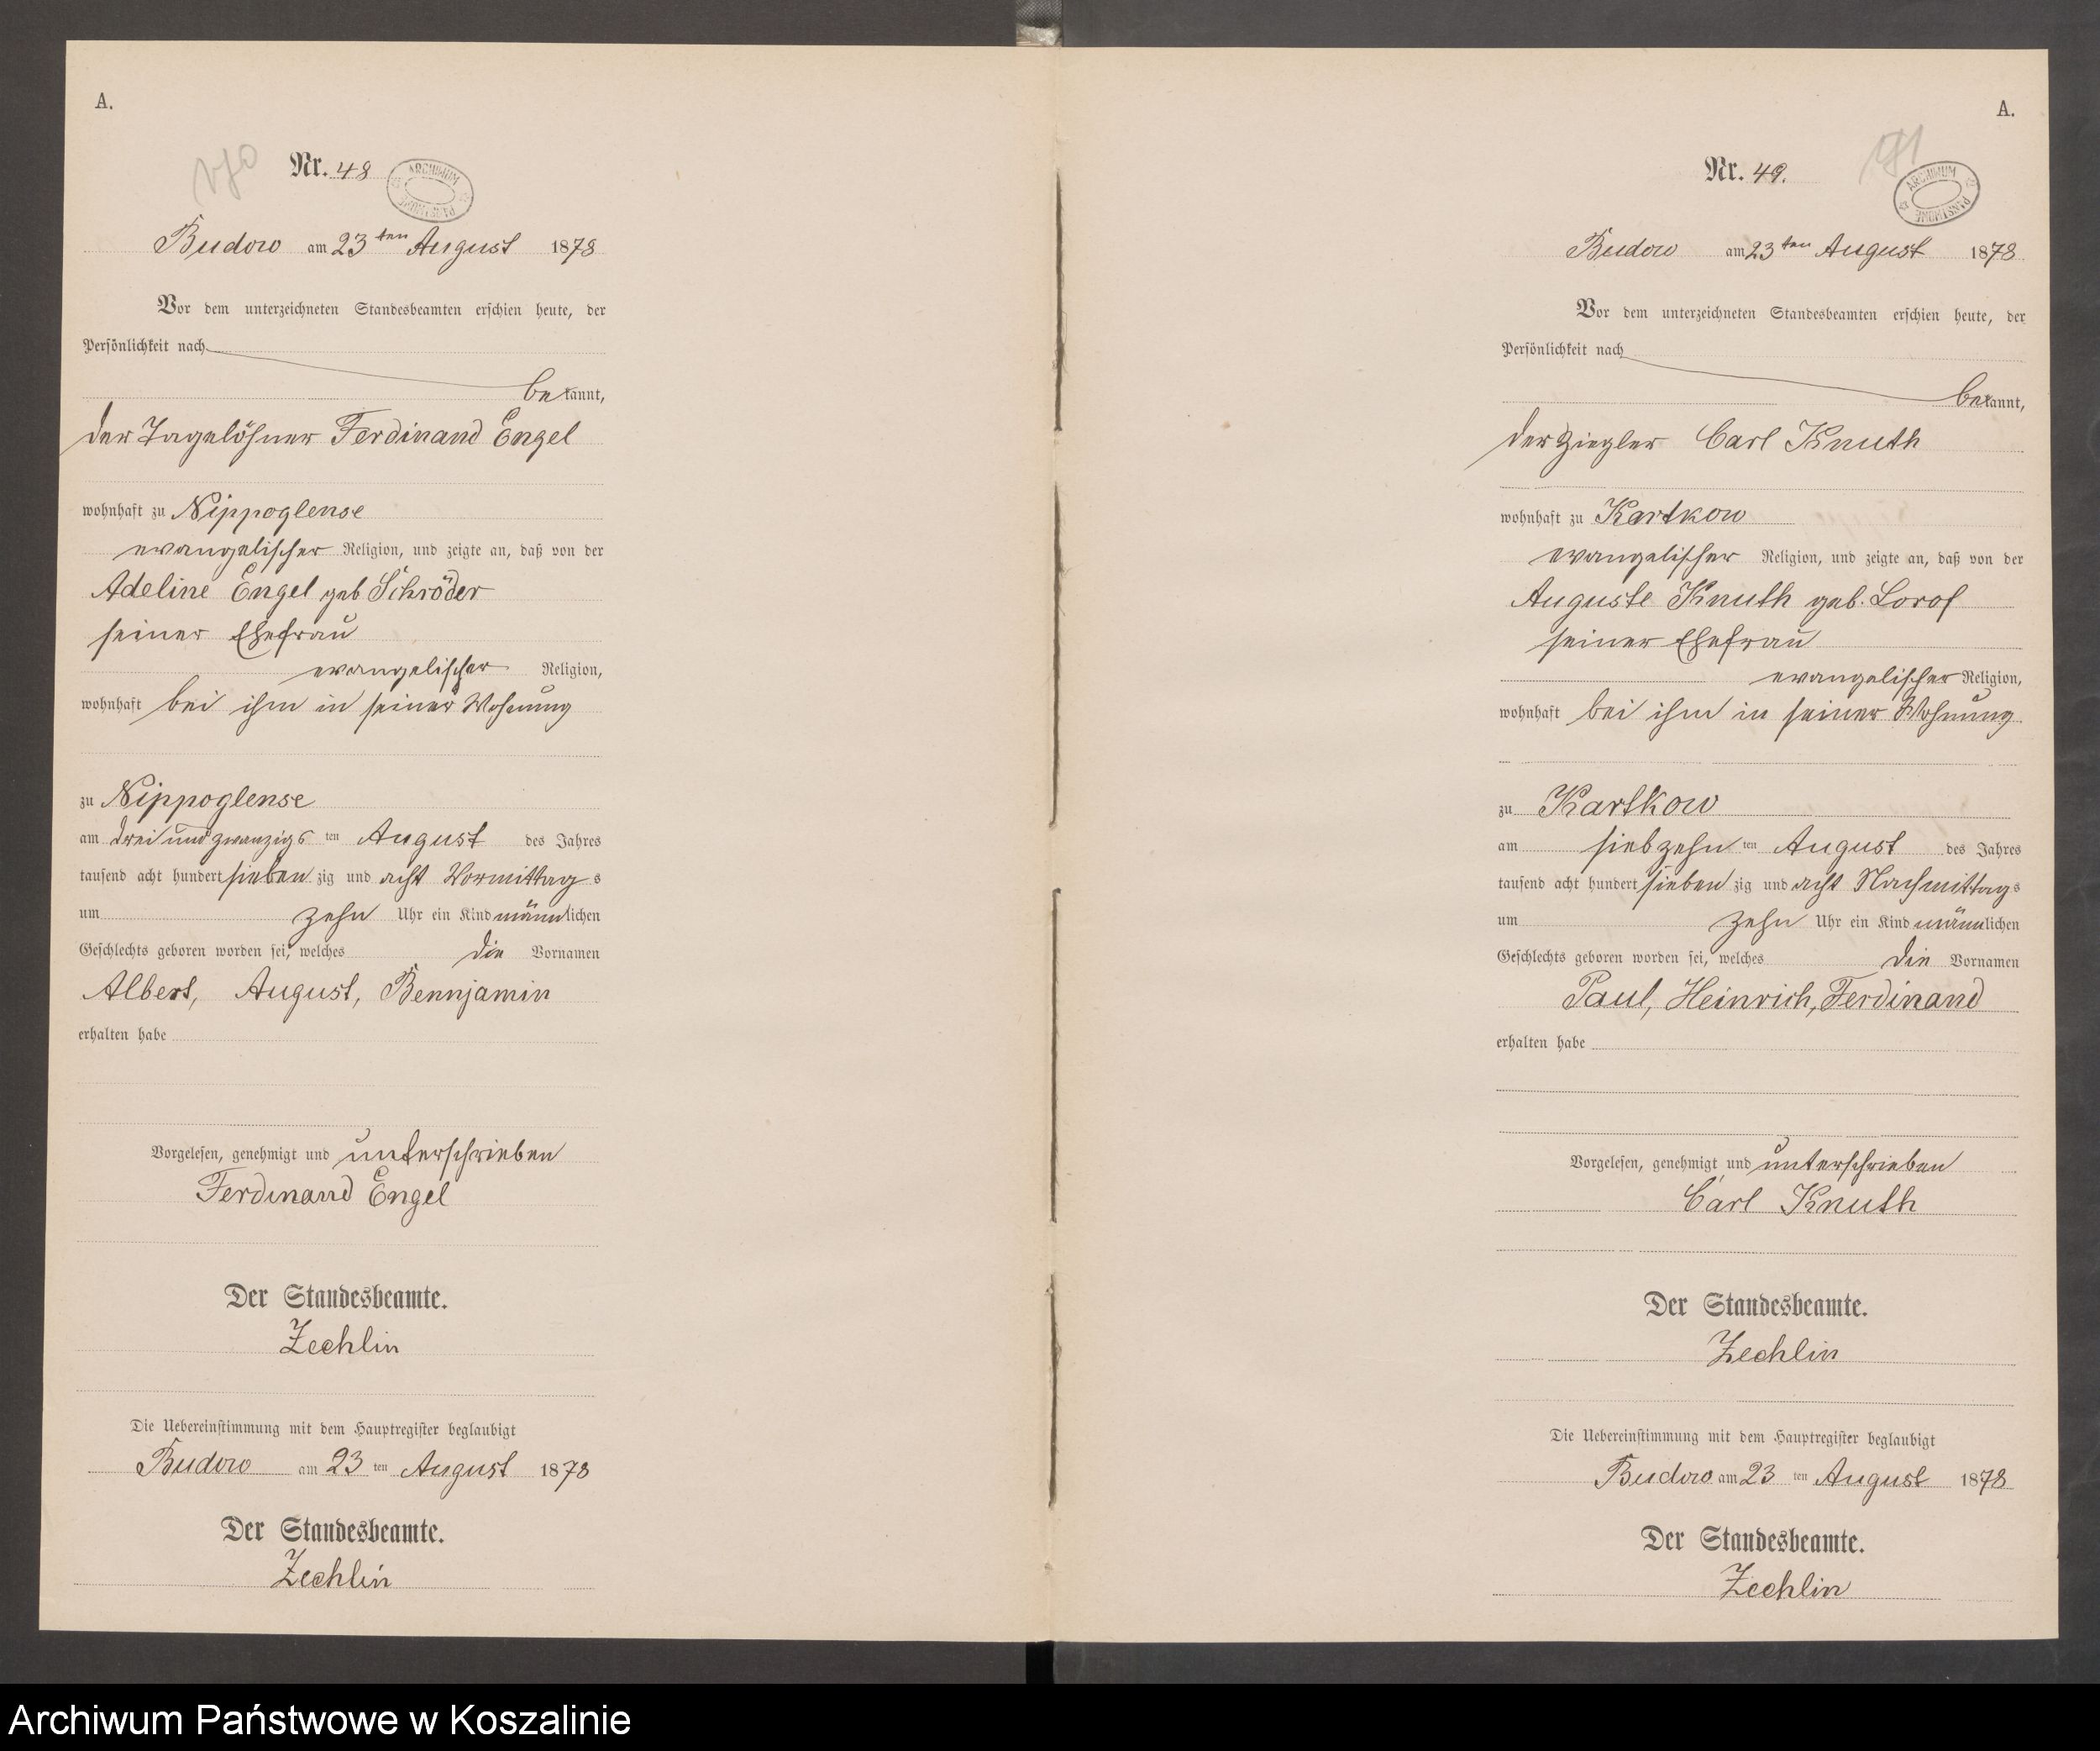 A.
Nr. 48
ARCHIWUM PAŃSTWOWE
Budow am 23ten August 1878
Vor dem unterzeichneten Standesbeamten erschien heute, der
Persönlichkeit nach
bekannt,
der Tagelöhner Ferdinand Engel
wohnhaft zu Nippoglense
evangelischer Religion, und zeigte an, daß von der
Adeline Engel geb Schröder
seiner Ehefrau
evangelischer Religion,
wohnhaft bei ihm in seiner Wohnung
zu Nippoglense
am drei und zwanzigsten August des Jahres
tausend acht hundert sieben zig und acht Vormittags
um zehn Uhr ein Kind männlichen
Geschlechts geboren worden sei, welches die Vornamen
Albert, August, Bennjamin
erhalten habe
Vorgelesen, genehmigt und unterschrieben
Ferdinand Engel
Der Standesbeamte.
Zechlin
Die Uebereinstimmung mit dem Hauptregister beglaubigt
Budow am 23 ten August 1878
Der Standesbeamte.
Zechlin
A.
Nr. 49.
ARCHIWUM PAŃSTWOWE
Budow am 23ten August 1878
Vor dem unterzeichneten Standesbeamten erschien heute, der
Persönlichkeit nach
bekannt,
der Ziegler Carl Knuth
wohnhaft zu Kartkow
evangelischer Religion, und zeigte an, daß von der
Auguste Knuth geb. Lorof
seiner Ehefrau
evangelischer Religion,
wohnhaft bei ihm in seiner Wohnung
zu Kartkow
am siebzehn ten August des Jahres
tausend acht hundert sieben zig und acht Nachmittags
um zehn Uhr ein Kind männlichen
Geschlechts geboren worden sei, welches die Vornamen
Paul, Heinrich, Ferdinand
erhalten habe
Vorgelesen, genehmigt und unterschrieben
Carl Knuth
Der Standesbeamte.
Zechlin
Die Uebereinstimmung mit dem Hauptregister beglaubigt
Budow am 23 ten August 1878
Der Standesbeamte.
Zechlin
Archiwum Państwowe w Koszalinie